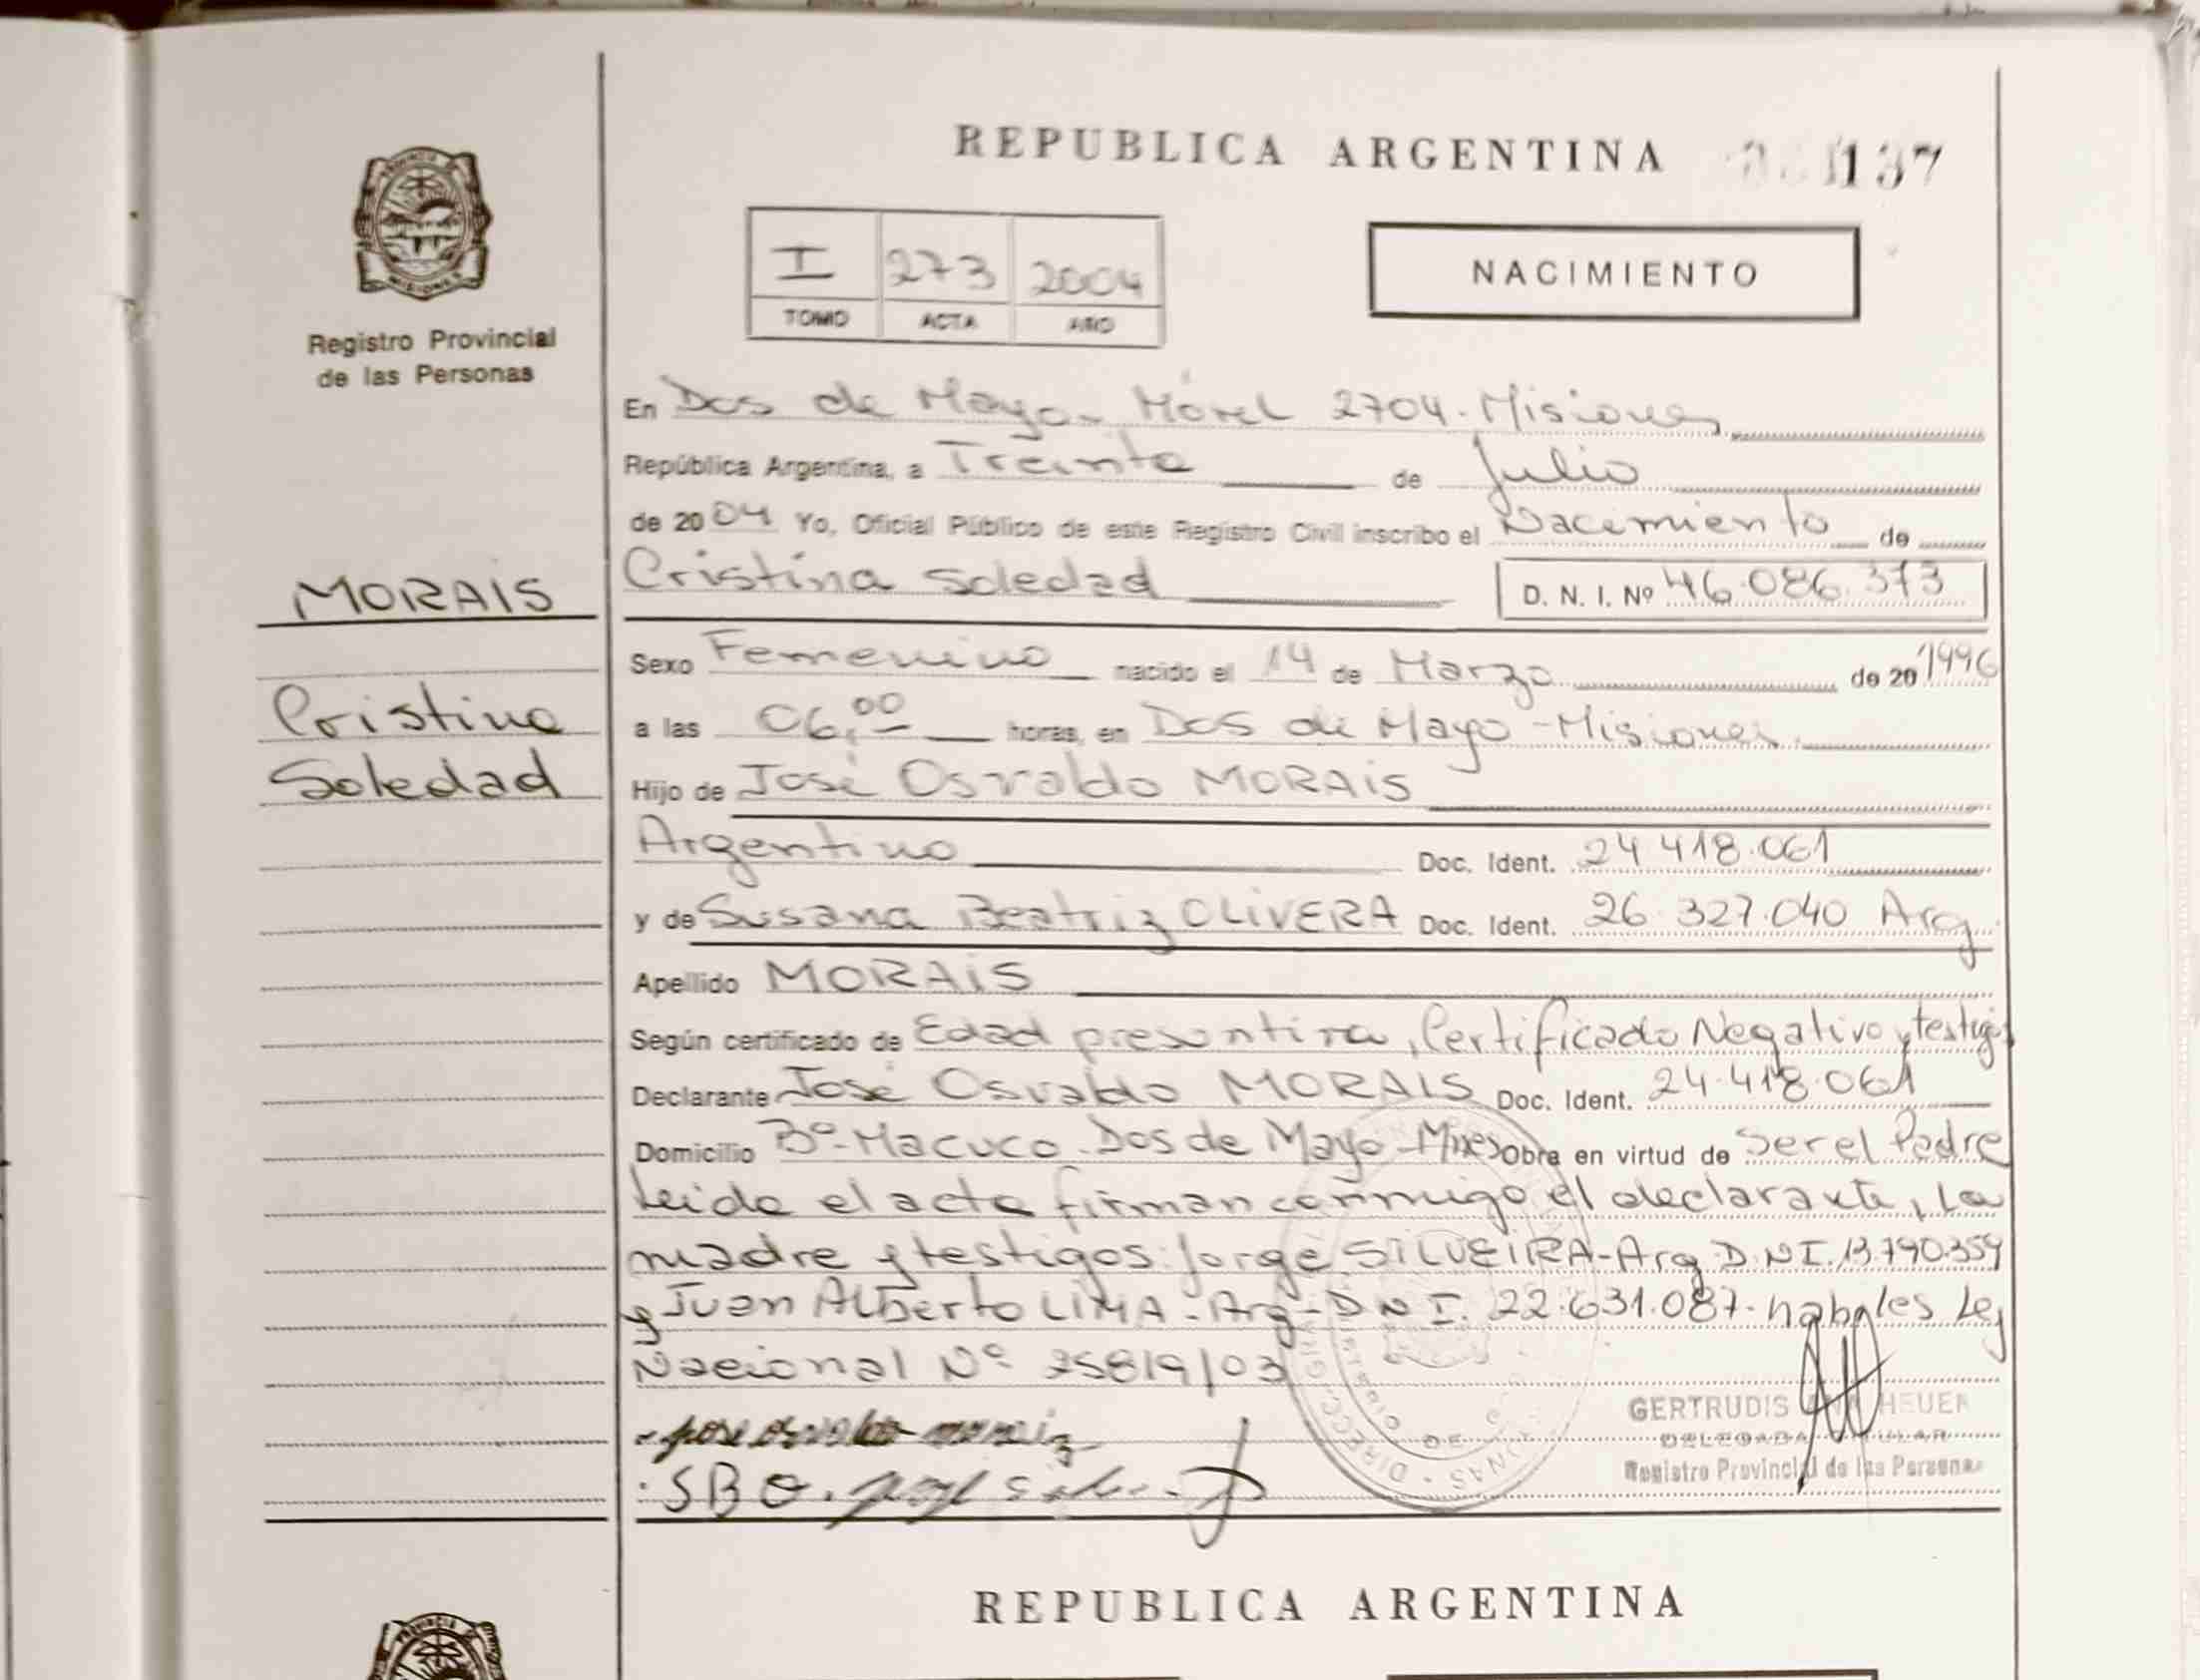 REPUBLICA ARGENTINA 137
I 273 2004
TOMO ACTA AÑO
NACIMIENTO
Registro Provincial
de las Personas
En Dos de Mayo - 2704 - Misiones
República Argentina, a Treinta de Julio
de 2004 Yo, Oficial Público de este Registro Civil inscribo el Nacimiento de
MORAIS
Cristina Soledad D. N. I. Nº 46.086.373
Sexo Femenino nacido el 14 de Marzo de 20 1996
Cristina
a las 06,00 horas, en Dos de Mayo - Misiones
Soledad
Hijo de José Osvaldo MORAIS
Argentino Doc. Ident. 24 418.061
y de Susana Beatriz OLIVERA Doc. Ident. 26.327.040 Arg.
Apellido MORAIS
Según certificado de Edad presuntiva, Certificado Negativo y testigos
Declarante José Osvaldo MORAIS Doc. Ident. 24.418.061
Domicilio Bº-Macuco. Dos de Mayo - Mnes Obra en virtud de Ser el Padre
Leida el acta firman conmigo el declarante, La
madre y testigos: Jorge SILVEIRA - Arg D.N.I. 13.790.359
y Juan Alberto LIMA - Arg - D.N.I. 22.631.087 - habales Ley
Nacional Nº 25819/03
jose osvaldo morais
SBO.
GERTRUDIS HEUER
DELEGADA TITULAR
Registro Provincial de las Personas
REPUBLICA ARGENTINA